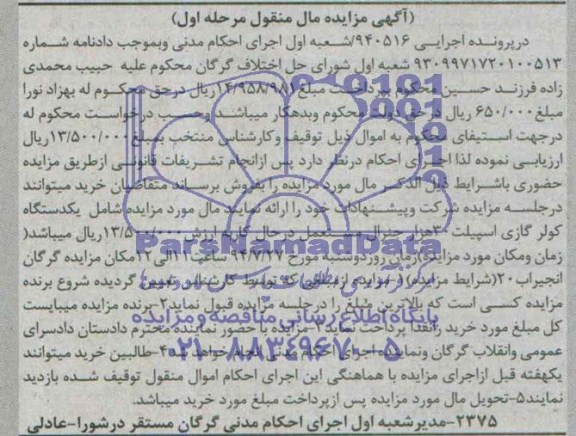 (آگهی مزایده مال منقول مرحله اول)
درپرونده اجرایی ۹۴۰۵۱۶/شعبه اول اجرای احکام مدنی وبموجب دادنامه شماره
۹۳۰۹۹۷۱۷۲۰۱۰۰۵۱۳ شعبه اول شورای حل اختلاف گرگان محکوم علیه حبیب محمدی
زاده فرزند حسین محکوم بپرداخت مبلغ ۱۴/۹۵۸/۹۸۱ ریال درحق محکوم له بهزاد نورا
مبلغ ۶۵۰/۰۰۰ ریال درحق دولت محکوم وبدهکار میباشد وحسب درخواست محکوم له
درجهت استیفای محکوم به اموال ذیل توقیف وکارشناس منتخب بمبلغ ۱۳/۵۰۰/۰۰۰ریال
ارزیابی نموده لذا اجرای احکام درنظر دارد پس ازانجام تشریفات قانونی ازطریق مزایده
حضوری باشرایط ذیل الذکر مال مورد مزایده را بفروش برساند متقاضیان خرید میتوانند
درجلسه مزایده شرکت وپیشنهادات خود را ارائه نمایند مال مورد مزایده شامل یکدستگاه
کولر گازی اسپیلت هزار جنرال مستعمل درحال کار به ارزش ۱۳/۵۰۰/۰۰۰ریال میباشد(
زمان ومکان مورد مزایده)زمان روزدوشنبه مورخ ۹۴/۷/۲۷ ساعت ۱۱الی ۱۲مکان مزایده گرگان
انجیراب ۲۰(شرایط مزایده)۱-مزایده ازمبلغی که توسط کارشناس تعیین گردیده شروع برنده
مزایده کسی است که بالاترین مبلغ را درجلسه مزایده قبول نماید۲-برنده مزایده میبایست
کل مبلغ مورد خرید رانقدا پرداخت نماید۳-مزایده باحضور نماینده محترم دادستان دادسرای
عمومی وانقلاب گرگان ونماینده اجرای احکام مدنی انجام خواهد شد۴-طالبین خرید میتوانند
یکهفته قبل ازاجرای مزایده با هماهنگی این اجرای احکام اموال منقول توقیف شده بازدید
نمایند۵-تحویل مال مورد مزایده پس ازپرداخت مبلغ مورد خرید میباشد.
۲۳۷۵-مدیرشعبه اول اجرای احکام مدنی گرگان مستقر درشورا-عادلی
ParsNamadData
پایگاه اطلاع رسانی مناقصه و مزایده
۰۲۱-۸۸۳۴۹۶۷۰-۵